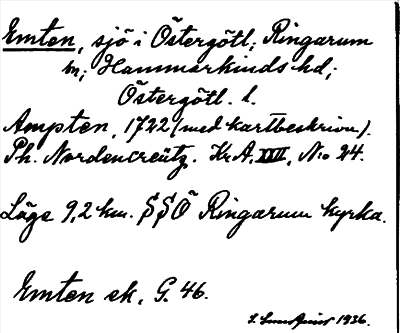 Emten, sjö i Östergötl; Ringarum
sn; Hammarkinds hd;
Östergötl. l.
Ampten, 1722 (med kartbeskrivn).
Ph. Nordencreütz. Kr.A. XVII, N:o 24.
Läge 9,2 km. SSÖ Ringarum kyrka.
Emten ek. G. 46.
1936.